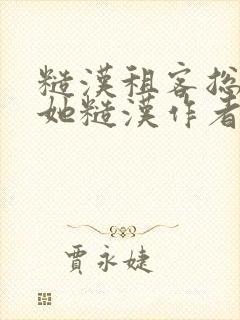 糙漢租客총
她糙漢作者
賈永婕